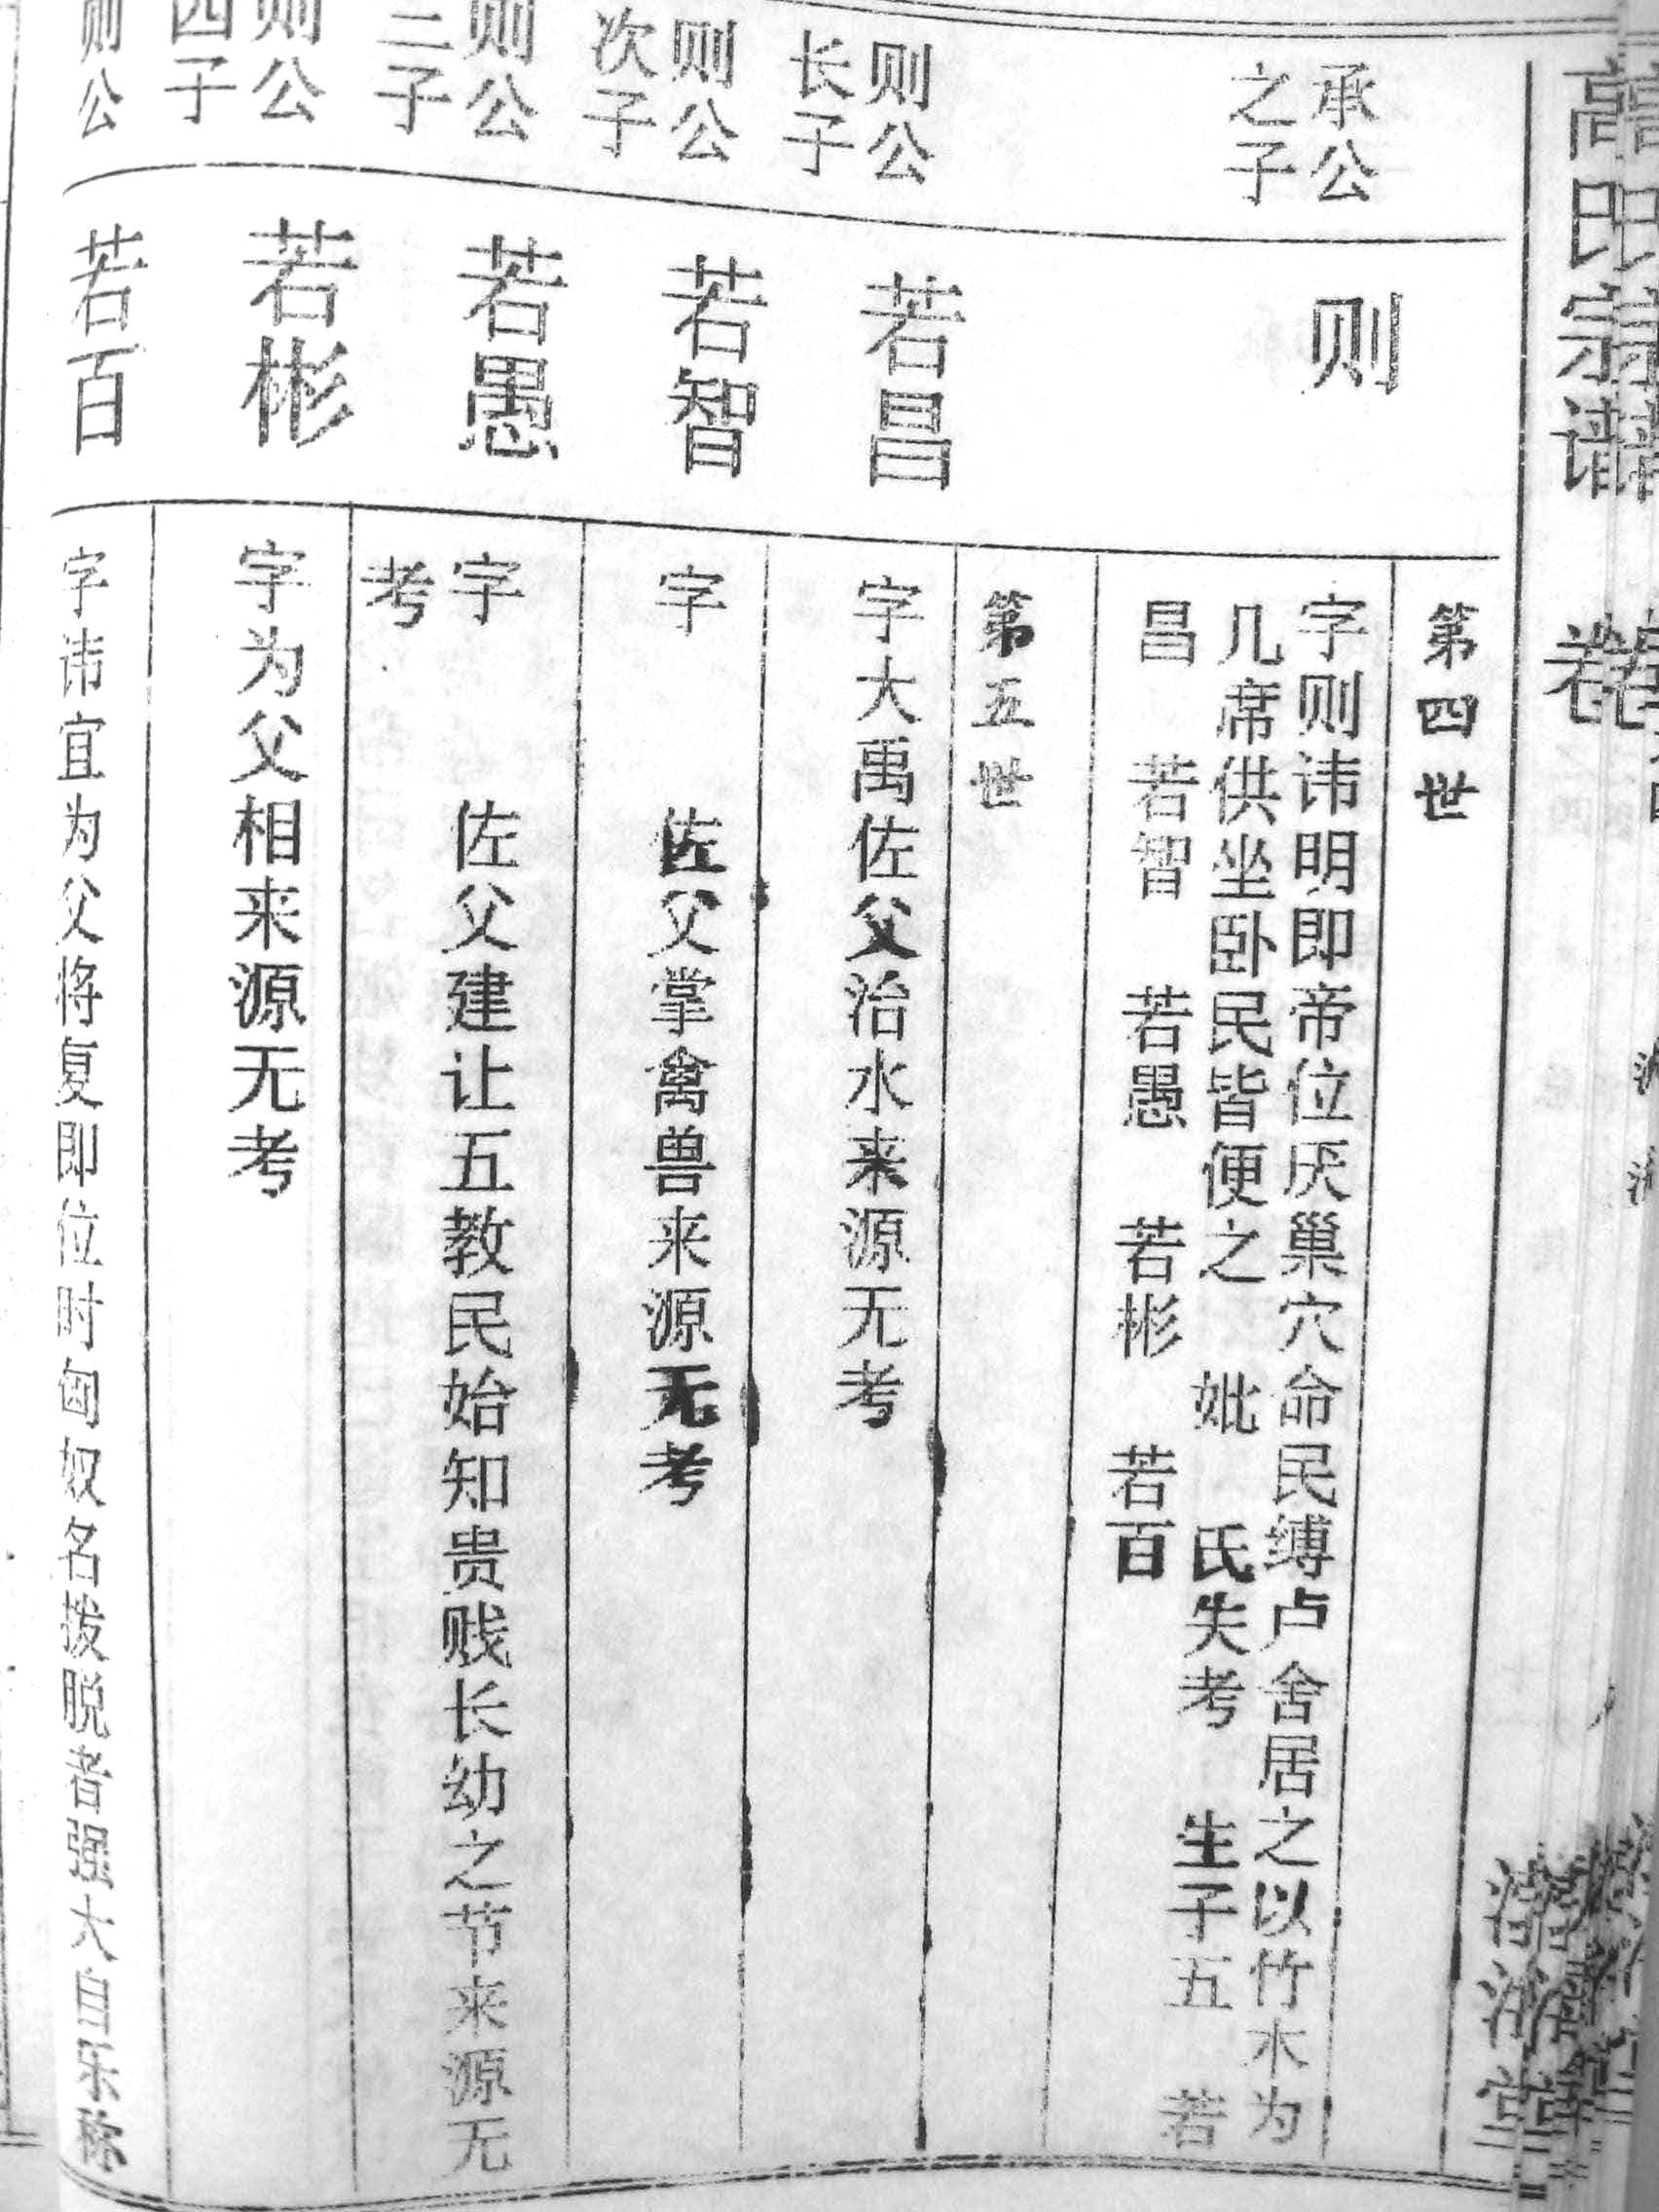 高氏宗谱
卷
第四世
承公
之子
则
字则讳明即帝位厌巢穴命民缚卢舍居之以竹木为
几席供坐卧民皆便之 妣 氏失考 生子五 若
昌 若智 若愚 若彬 若百
第五世
则公
长子
若昌
字大禹佐父治水来源无考
则公
次子
若智
字 佐父掌禽兽来源无考
则公
三子
若愚
字 佐父建让五教民始知贵贱长幼之节来源无
考
则公
四子
若彬
字为父相来源无考
则公
若百
字讳宜为父将复即位时匈奴名拨脱者强大自乐